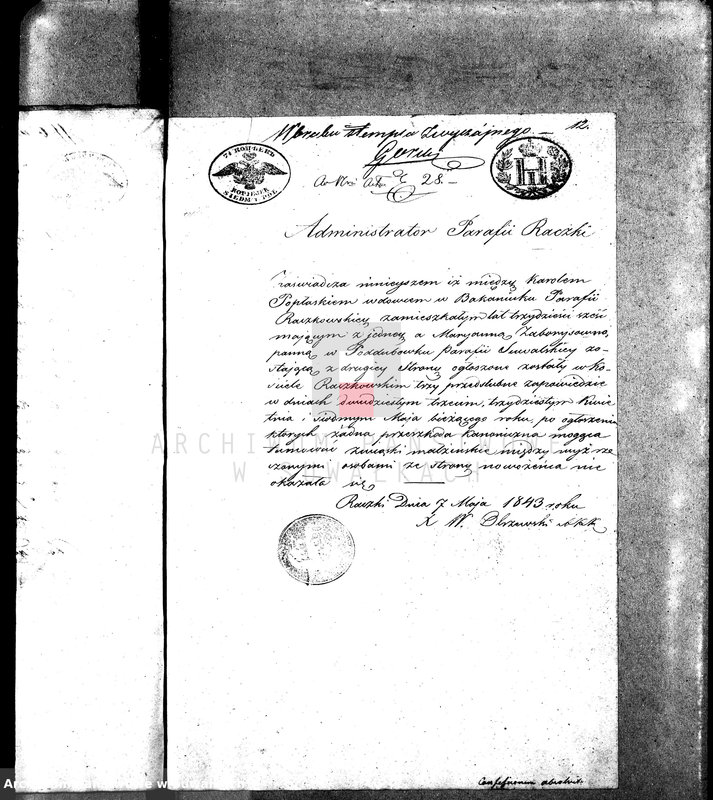 W braku stempla zwyczajnego
12.
7½ КОПѢЕКЪ
KOPIEJEK
SIEDM I POŁ
do Nru Akt 28.
Administrator Parafii Raczki
Zaświadcza ninieyszem iż między Karolem
Popławskiem wdowcem w Bakaniuku Parafii
Raczkowskiey zamieszkałym lat trzydzieści sześć
mającym z jedney a Maryanną Zaborysowną
panną w Poddubowku Parafii Suwalskiey zo-
stającą z drugiey Strony ogłoszone zostały w Ko-
ściele Raczkowskim trzy przedślubne zapowiedzie
w dniach dwudziestym trzecim, trzydziestym Kwie-
tnia i siódmym Maja bieżącego roku, po ogłoszeniu
których żadna przeszkoda kanoniczna mogąca
tamować związki małżeńskie między wyż rze-
czonymi osobami ze strony nowożenia nie
okazała się
Raczki Dnia 7 Maja 1843 roku
X W. Olszewski
ARCHIWUM PAŃSTWOWE
W SUWAŁKACH